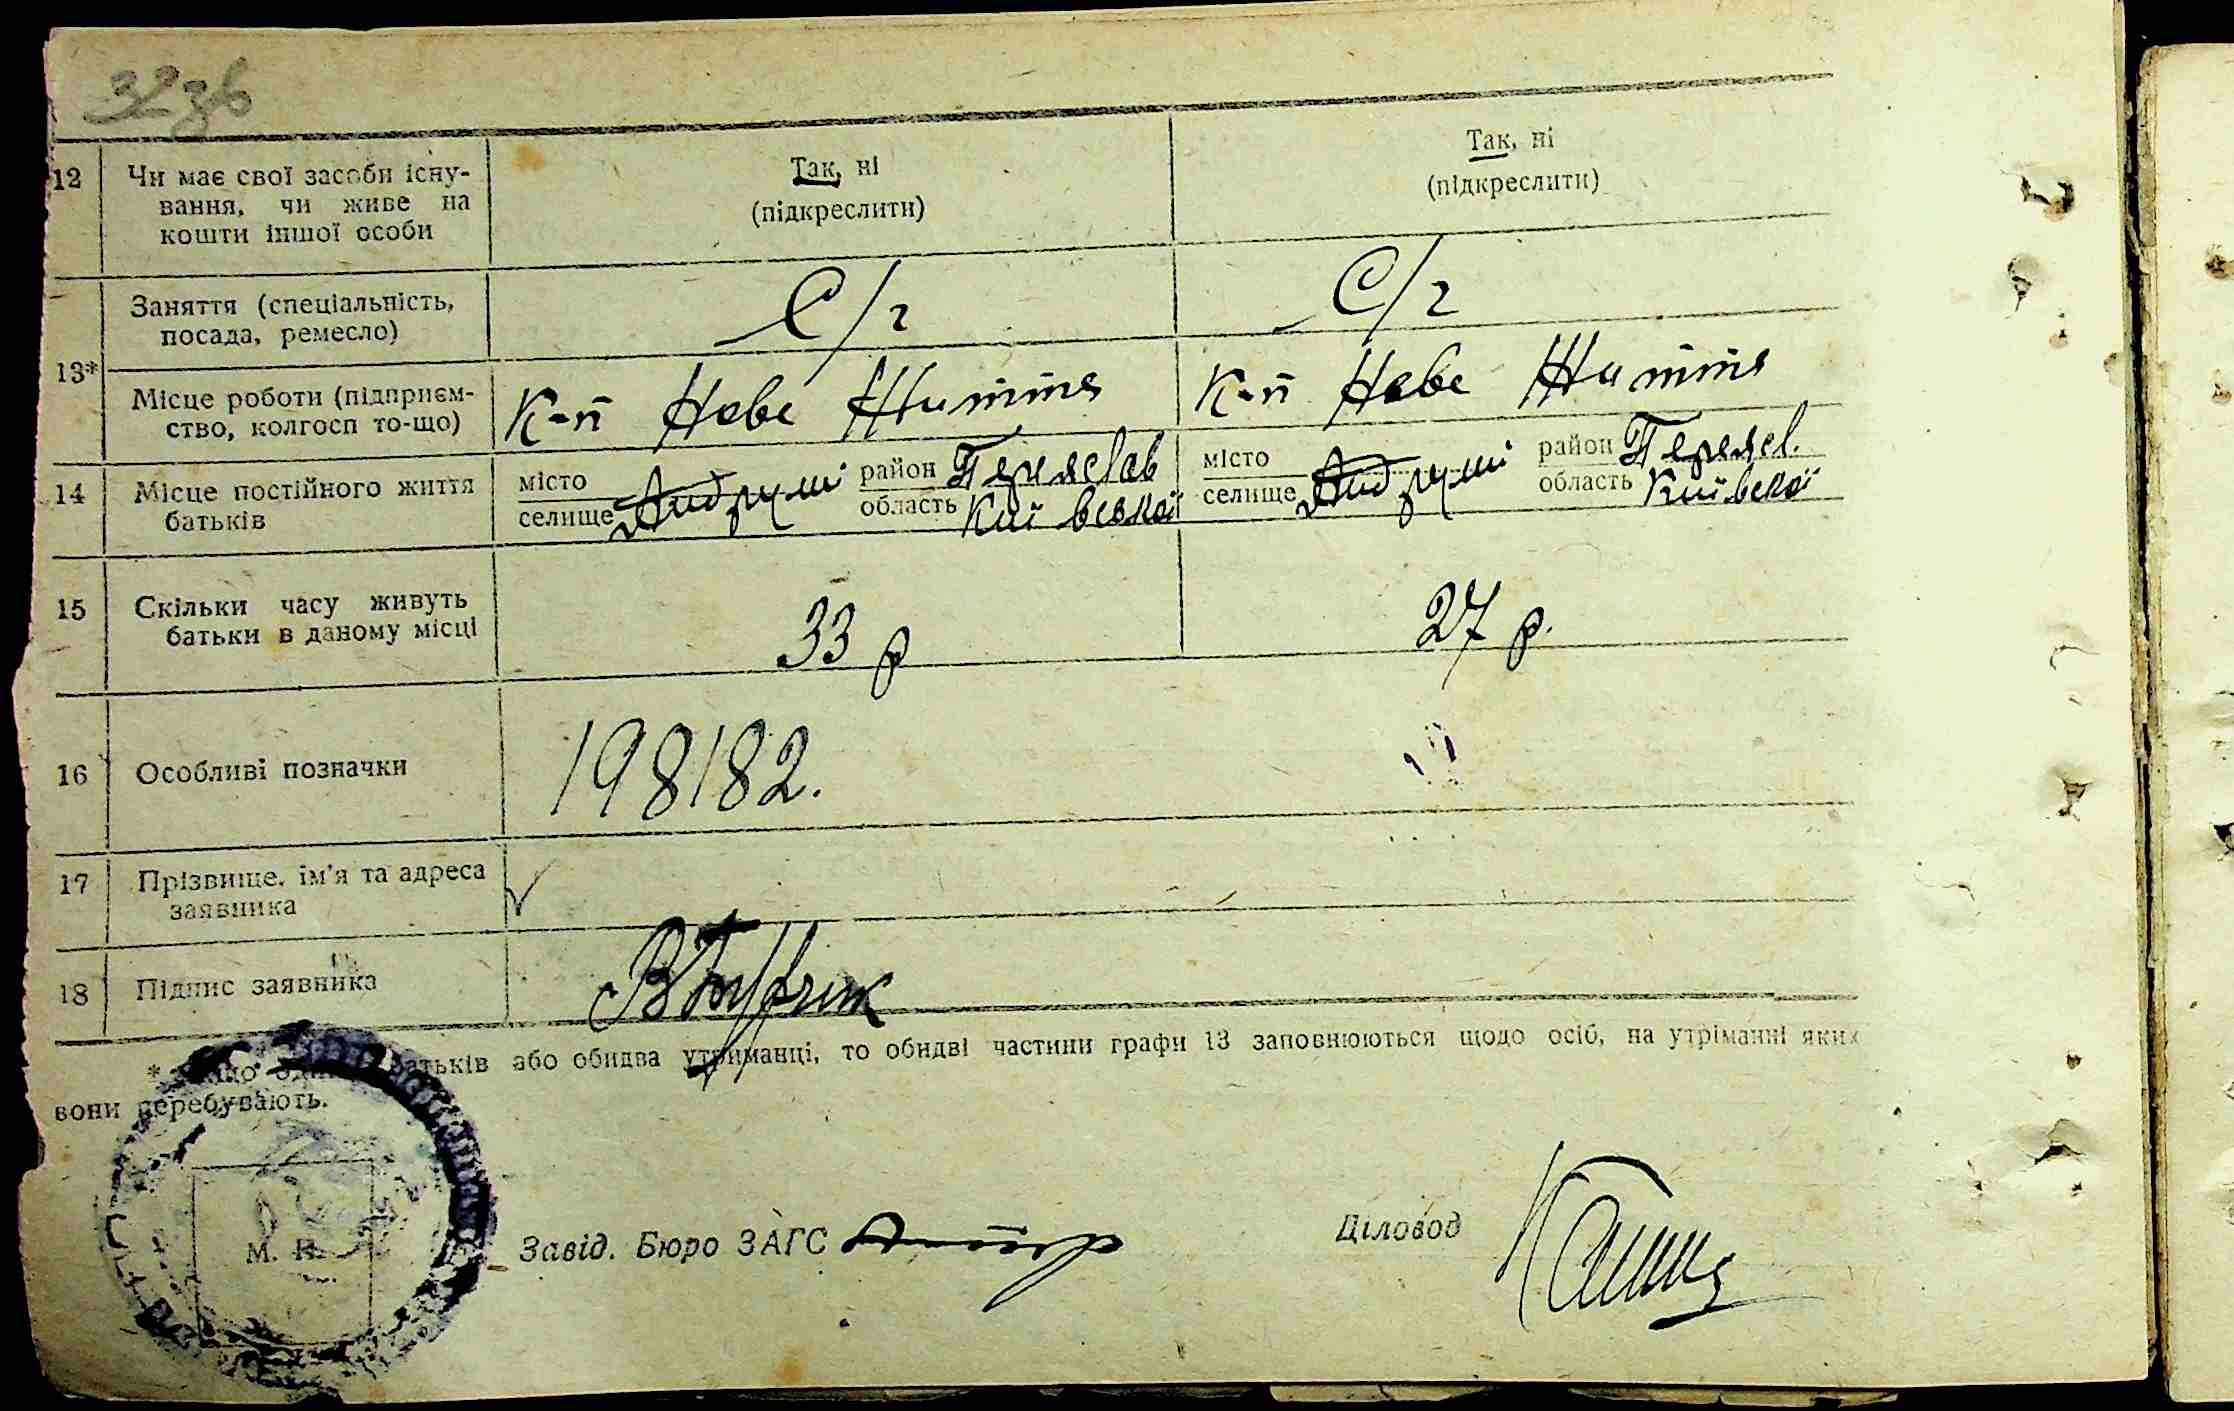 32зв
12 Чи має свої засоби існу-
вання, чи живе на
кошти іншої особи
Так, ні
(підкреслити)
Так, ні
(підкреслити)
13*
Заняття (спеціальність,
посада, ремесло)
С/г
С/г
Місце роботи (підприєм-
ство, колгосп то-що)
К-п Нове Життя
К-п Нове Життя
14 Місце постійного життя
батьків
місто
селище Андруші
район Переяслав
область Київської
місто
селище Андруші
район Переясл.
область Київської
15 Скільки часу живуть
батьки в даному місці
33 р
27 р.
16 Особливі позначки
198182.
17 Прізвище, ім'я та адреса
заявника
18 Підпис заявника
* батьків або обидва утриманці, то обидві частини графи 13 заповнюються щодо осіб, на утріманні яких
вони перебувають.
М. П.
Завід. Бюро ЗАГС
Діловод